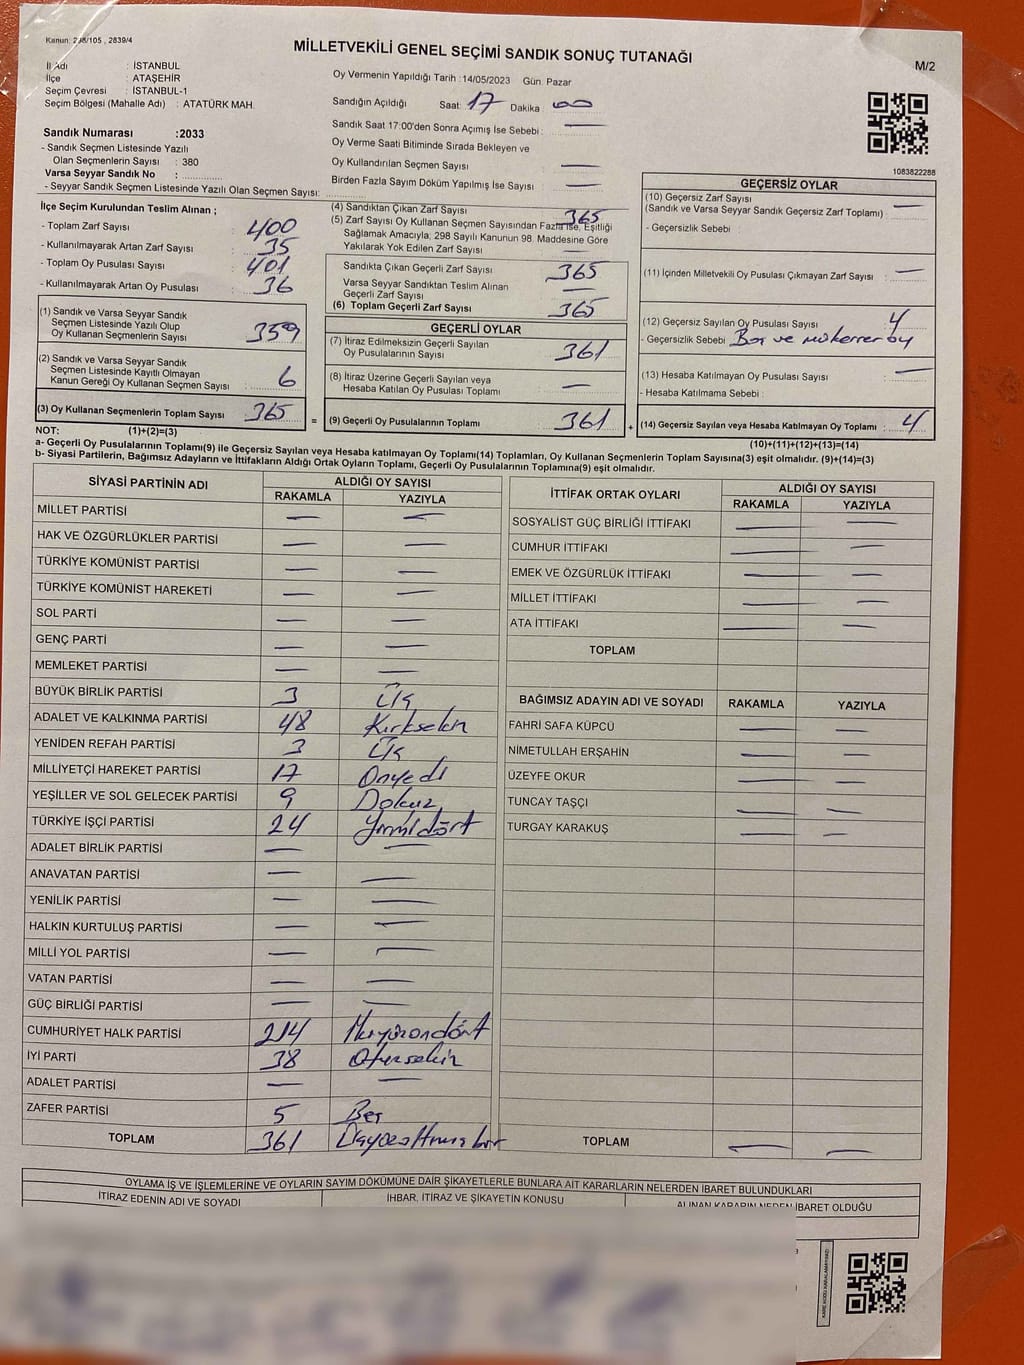 Kanun: 298/105 , 2839/4
MİLLETVEKİLİ GENEL SEÇİMİ SANDIK SONUÇ TUTANAĞI
M/2
İl Adı : İSTANBUL
İlçe : ATAŞEHİR
Seçim Çevresi : İSTANBUL-1
Seçim Bölgesi (Mahalle Adı) : ATATÜRK MAH.
Sandık Numarası :2033
- Sandık Seçmen Listesinde Yazılı
Olan Seçmenlerin Sayısı : 380
Varsa Seyyar Sandık No :
- Seyyar Sandık Seçmen Listesinde Yazılı Olan Seçmen Sayısı:
Oy Vermenin Yapıldığı Tarih :14/05/2023 Gün: Pazar
Sandığın Açıldığı Saat: 17 Dakika 00
Sandık Saat 17:00'den Sonra Açımış İse Sebebi : —
Oy Verme Saati Bitiminde Sırada Bekleyen ve
Oy Kullandırılan Seçmen Sayısı —
Birden Fazla Sayım Döküm Yapılmış İse Sayısı —
1083822288
İlçe Seçim Kurulundan Teslim Alınan ;
- Toplam Zarf Sayısı : 400
- Kullanılmayarak Artan Zarf Sayısı : 35
- Toplam Oy Pusulası Sayısı : 401
- Kullanılmayarak Artan Oy Pusulası : 36
(1) Sandık ve Varsa Seyyar Sandık
Seçmen Listesinde Yazılı Olup
Oy Kullanan Seçmenlerin Sayısı : 359
(2) Sandık ve Varsa Seyyar Sandık
Seçmen Listesinde Kayıtlı Olmayan
Kanun Gereği Oy Kullanan Seçmen Sayısı : 6
(3) Oy Kullanan Seçmenlerin Toplam Sayısı 365
(4) Sandıktan Çıkan Zarf Sayısı 365
(5) Zarf Sayısı Oy Kullanan Seçmen Sayısından Fazla İse, Eşitliği
Sağlamak Amacıyla; 298 Sayılı Kanunun 98. Maddesine Göre
Yakılarak Yok Edilen Zarf Sayısı —
Sandıkta Çıkan Geçerli Zarf Sayısı 365
Varsa Seyyar Sandıktan Teslim Alınan
Geçerli Zarf Sayısı —
(6) Toplam Geçerli Zarf Sayısı 365
GEÇERLİ OYLAR
(7) İtiraz Edilmeksizin Geçerli Sayılan
Oy Pusulalarının Sayısı 361
(8) İtiraz Üzerine Geçerli Sayılan veya
Hesaba Katılan Oy Pusulası Toplamı —
= (9) Geçerli Oy Pusulalarının Toplamı 361 +
GEÇERSİZ OYLAR
(10) Geçersiz Zarf Sayısı
(Sandık ve Varsa Seyyar Sandık Geçersiz Zarf Toplamı) : —
- Geçersizlik Sebebi :
(11) İçinden Milletvekili Oy Pusulası Çıkmayan Zarf Sayısı : —
(12) Geçersiz Sayılan Oy Pusulası Sayısı : 4
- Geçersizlik Sebebi : Boş ve mükerrer oy
(13) Hesaba Katılmayan Oy Pusulası Sayısı : —
- Hesaba Katılmama Sebebi :
(14) Geçersiz Sayılan veya Hesaba Katılmayan Oy Toplamı : 4
NOT: (1)+(2)=(3) (10)+(11)+(12)+(13)=(14)
a- Geçerli Oy Pusulalarının Toplamı(9) ile Geçersiz Sayılan veya Hesaba katılmayan Oy Toplamı(14) Toplamları, Oy Kullanan Seçmenlerin Toplam Sayısına(3) eşit olmalıdır. (9)+(14)=(3)
b- Siyasi Partilerin, Bağımsız Adayların ve İttifakların Aldığı Ortak Oyların Toplamı, Geçerli Oy Pusulalarının Toplamına(9) eşit olmalıdır.
SİYASİ PARTİNİN ADI ALDIĞI OY SAYISI
RAKAMLA YAZIYLA
MİLLET PARTİSİ — —
HAK VE ÖZGÜRLÜKLER PARTİSİ — —
TÜRKİYE KOMÜNİST PARTİSİ — —
TÜRKİYE KOMÜNİST HAREKETİ — —
SOL PARTİ — —
GENÇ PARTİ — —
MEMLEKET PARTİSİ — —
BÜYÜK BİRLİK PARTİSİ 3 Üç
ADALET VE KALKINMA PARTİSİ 48 Kırksekiz
YENİDEN REFAH PARTİSİ 3 Üç
MİLLİYETÇİ HAREKET PARTİSİ 17 Onyedi
YEŞİLLER VE SOL GELECEK PARTİSİ 9 Dokuz
TÜRKİYE İŞÇİ PARTİSİ 24 Yirmidört
ADALET BİRLİK PARTİSİ — —
ANAVATAN PARTİSİ — —
YENİLİK PARTİSİ — —
HALKIN KURTULUŞ PARTİSİ — —
MİLLİ YOL PARTİSİ — —
VATAN PARTİSİ — —
GÜÇ BİRLİĞİ PARTİSİ — —
CUMHURİYET HALK PARTİSİ 214 İkiyüzondört
İYİ PARTİ 38 Otuzsekiz
ADALET PARTİSİ — —
ZAFER PARTİSİ 5 Beş
TOPLAM 361 Üçyüzaltmışbir
İTTİFAK ORTAK OYLARI ALDIĞI OY SAYISI
RAKAMLA YAZIYLA
SOSYALİST GÜÇ BİRLİĞİ İTTİFAKI — —
CUMHUR İTTİFAKI — —
EMEK VE ÖZGÜRLÜK İTTİFAKI — —
MİLLET İTTİFAKI — —
ATA İTTİFAKI — —
TOPLAM
BAĞIMSIZ ADAYIN ADI VE SOYADI RAKAMLA YAZIYLA
FAHRİ SAFA KÜPCÜ — —
NİMETULLAH ERŞAHİN — —
ÜZEYFE OKUR — —
TUNCAY TAŞÇI — —
TURGAY KARAKUŞ — —
TOPLAM — —
OYLAMA İŞ VE İŞLEMLERİNE VE OYLARIN SAYIM DÖKÜMÜNE DAİR ŞİKAYETLERLE BUNLARA AİT KARARLARIN NELERDEN İBARET BULUNDUKLARI
İTİRAZ EDENİN ADI VE SOYADI İHBAR, İTİRAZ VE ŞİKAYETİN KONUSU ALINAN KARARIN NEDEN İBARET OLDUĞU